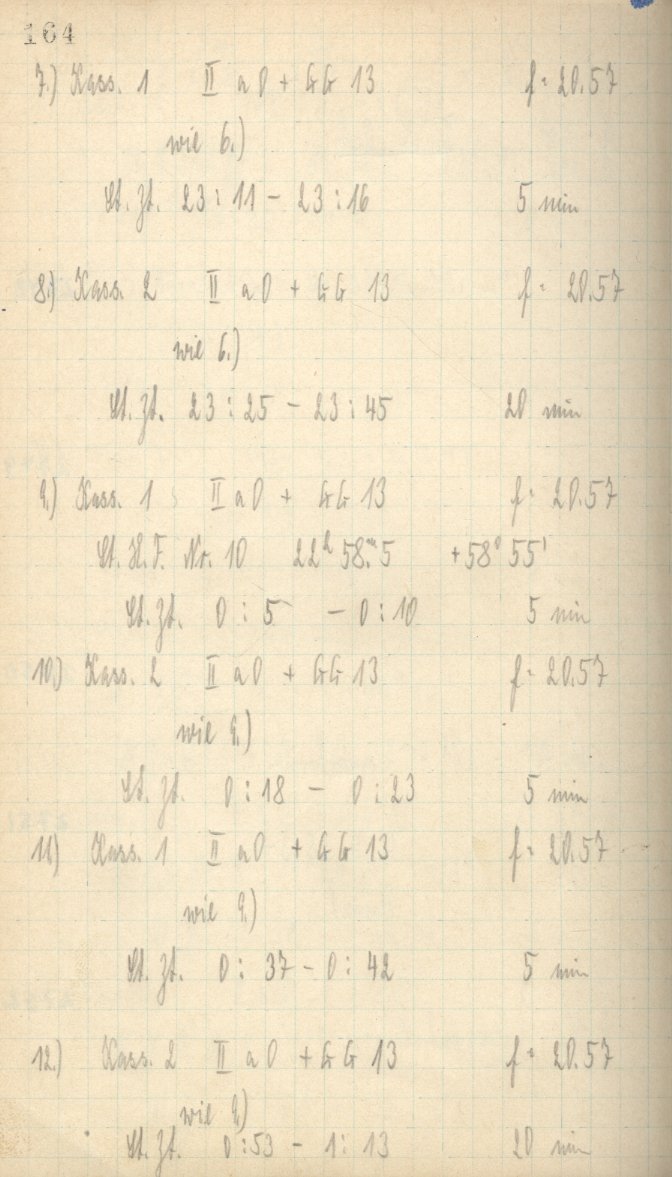 164
7.) Kass. 1 II a O + GG 13 f = 20.57
wie 6.)
St. Zt. 23 : 11 - 23 : 16 5 min
8.) Kass. 2 II a O + GG 13 f = 20.57
wie 6.)
St. Zt. 23 : 25 - 23 : 45 20 min
9.) Kass. 1 II a O + GG 13 f = 20.57
St. H. F. Nr. 10 22ʰ 58.ᵐ5 +58° 55'
St. Zt. 0 : 5 - 0 : 10 5 min
10.) Kass. 2 II a O + GG 13 f = 20.57
wie 9.)
St. Zt. 0 : 18 - 0 : 23 5 min
11.) Kass. 1 II a O + GG 13 f = 20.57
wie 9.)
St. Zt. 0 : 37 - 0 : 42 5 min
12.) Kass. 2 II a O + GG 13 f = 20.57
wie 9.)
St. Zt. 0 : 53 - 1 : 13 20 min